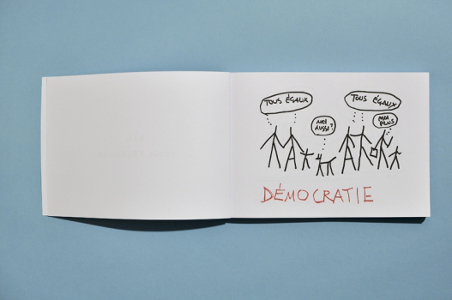 TOUS ÉGAUX
TOUS ÉGAUX
MOI
AUSSI?
MOI
PLUS
DÉMOCRATIE